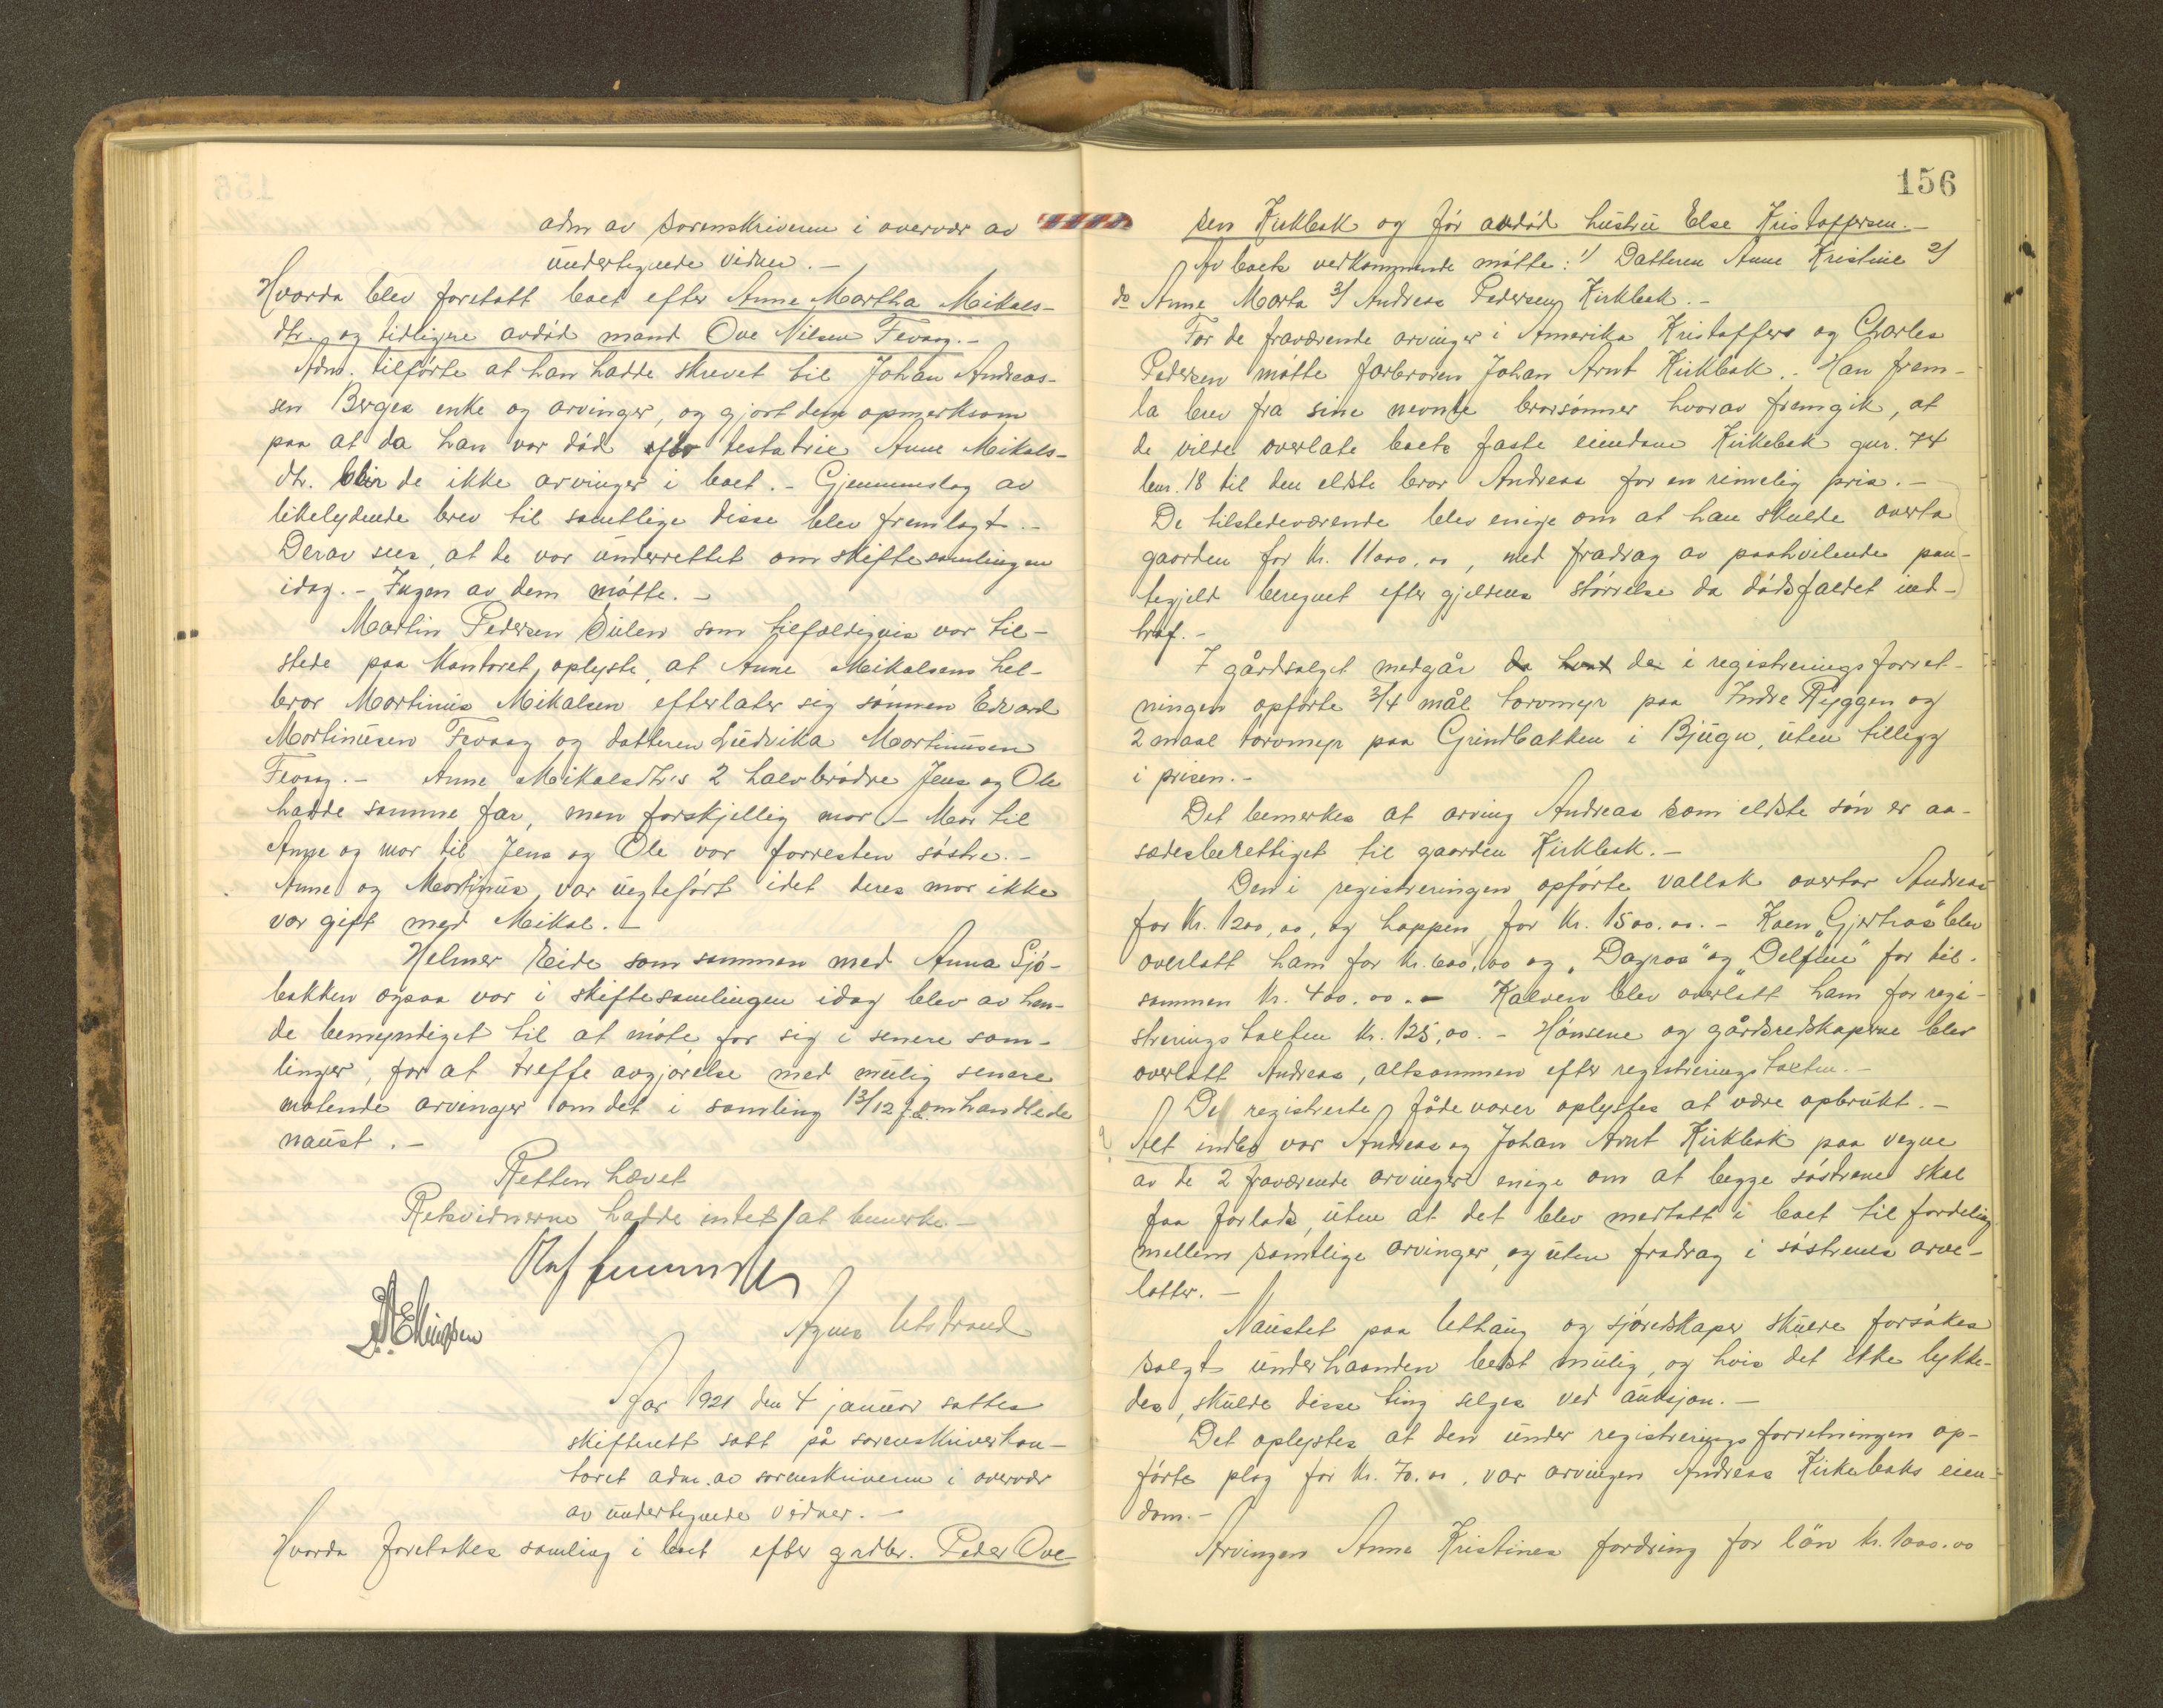 adm av sorenskriveren i overvær av
undertegnede vidner.-
Hvorda blev foretatt boet efter Anne Martha Mikals-
dtr. og tidligere avdød mand Ove Nilsen Fevaag.-
Adm. tilførte at han hadde skrevet til Johan Andreas-
sen Berges enke og arvinger, og gjort dem opmerksom
paa at da han var død før testatrix Anne Mikals-
dtr. blir de ikke arvinger i boet.- Gjennemslag av
likelydende brev til samtlige disse blev fremlagt.-
Derav sees, at de var underrettet om skiftesamlingen
idag.- Ingen av dem møtte.-
Martin Pedersen Dülen som tilfældigvis var til-
stede paa kontoret, oplyste, at Anne Mikalsens hel-
bror Martinus Mikalsen efterlater sig sønnen Edvard
Martinusen Fevaag og datteren Ludvika Martinusen
Fevaag.- Anne Mikalsdtr's 2 halvbrødre Jens og Ole
hadde samme far, men forskjellig mor.- Mor til
Anne og mor til Jens og Ole var forresten søstre.-
Anne og Martinus var uegteført idet deres mor ikke
var gift med Mikal.-
Helmer Eide som sammen med Anna Sjø-
bakken ogsaa var i skiftesamlingen idag blev av hen-
de bemyndiget til at møte for sig i senere sam-
linger, for at treffe avgjørelse med mulig senere
møtende arvinger om det i samling 13/12 f.å. omhandlede
naust.-
Retten hævet
Retsvidnerne hadde intet at bemerke.-
Ellingsen
Agnes Utstrand
Aar 1921 den 4 januar sattes
skifterett satt på sorenskriverkon-
toret adm. av sorenskriveren i overvær
av undertegnede vidner.-
Hvorda foretakes samling i boet efter gardbr. Peder Ove-
156
sen Kirkbak og før avdød hustru Else Kristoffersen.-
Av boets vedkommende møtte: 1/ Datteren Anne Kristine 2/
do Anne Marta 3/ Andreas Pedersen Kirkbak.-
For de fraværende arvinger i Amerika Kristoffers og Charles
Pedersen møtte farbroren Johan Arnt Kirkbak.- Han frem-
la brev fra sine nevnte brorsønner hvorav fremgik, at
de vilde overlate boets faste eiendom Kirkebak gnr. 74
bnr. 18 til den eldste bror Andreas for en rimelig pris.-
De tilstedeværende blev enige om at han skulde overta
gaarden for kr. 11000,00, med fradrag av paahvilende pan-
tegjeld beregnet efter gjeldens størrelse da dødsfaldet ind-
traf.-
I gårdsalget medgår da hvad de i registreringsforret-
ningen opførte 3/4 mål torvmyr paa Indre Ryggen og
2 maal torvmyr paa Grindbakken i Bjugn, uten tillegg
i prisen.-
Det bemerkes at arving Andreas som eldste søn er aa-
sædesberettiget til gaarden Kirkbak.-
Den i registreringen opførte vallak overtar Andreas
for kr. 1200,00, og hoppen for kr. 1500.00.- Koen „Gjertros" blev
overlatt ham for kr. 600,00 og „Dagros" og „Delfin" for til-
sammen kr. 400.00.- Kalven blev overlatt ham for regi-
streringstaksten kr. 125,00.- Hønsene og gårdsredskaperne blev
overlatt Andreas, altsammen efter registreringstaksten.-
De registrerte fødevarer oplystes at være opbrukt.-
Alt indbo var Andreas og Johan Arnt Kirkbak paa vegne
av de 2 fraværende arvinger enige om at begge søstrene skal
faa forlods, uten at det blev medtatt i boet til fordeling
mellem samtlige arvinger, og uten fradrag i søstrenes arve-
lotter.-
Naustet paa Uthaug og sjøredskaper skulde forsøkes
solgt underhaanden best mulig, og hvis det ikke lykke-
des, skulde disse ting selges ved auksjon.-
Det oplystes at den under registreringsforretningen op-
førte plog for kr. 70.00, var arvingen Andreas Kirkebaks eien-
dom.-
Arvingen Anne Kristines fordring for løn kr. 1000.00